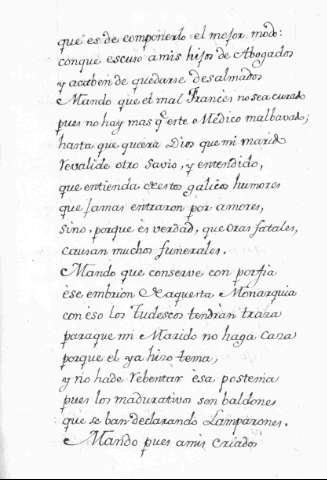 que es de componerlo el mejor modo:
conque escuso a mis hijos de Abogados
y acaben de quedarse desalmados
Mando que el mal Francès no sea curado
pues no hay mas q̃ este Médico malbado,
hasta que quiera Dios que mi marido
revalide otro Savio, y entendido,
que entienda destos galicos humores
que jamas entraron por amores,
sino porque es verdad, que oras fatales,
causan muchos funerales.
Mando que conserve con porfia
ese embrion de aquesta Monarquia
con eso los Tudescos tendran traza
para que mi Marido no haga caza
porque el ya hizo tema,
y no hade rebentar esa postema
pues los madurativos son baldones
que se ban declarando Lamparones.
Mando pues a mis criados